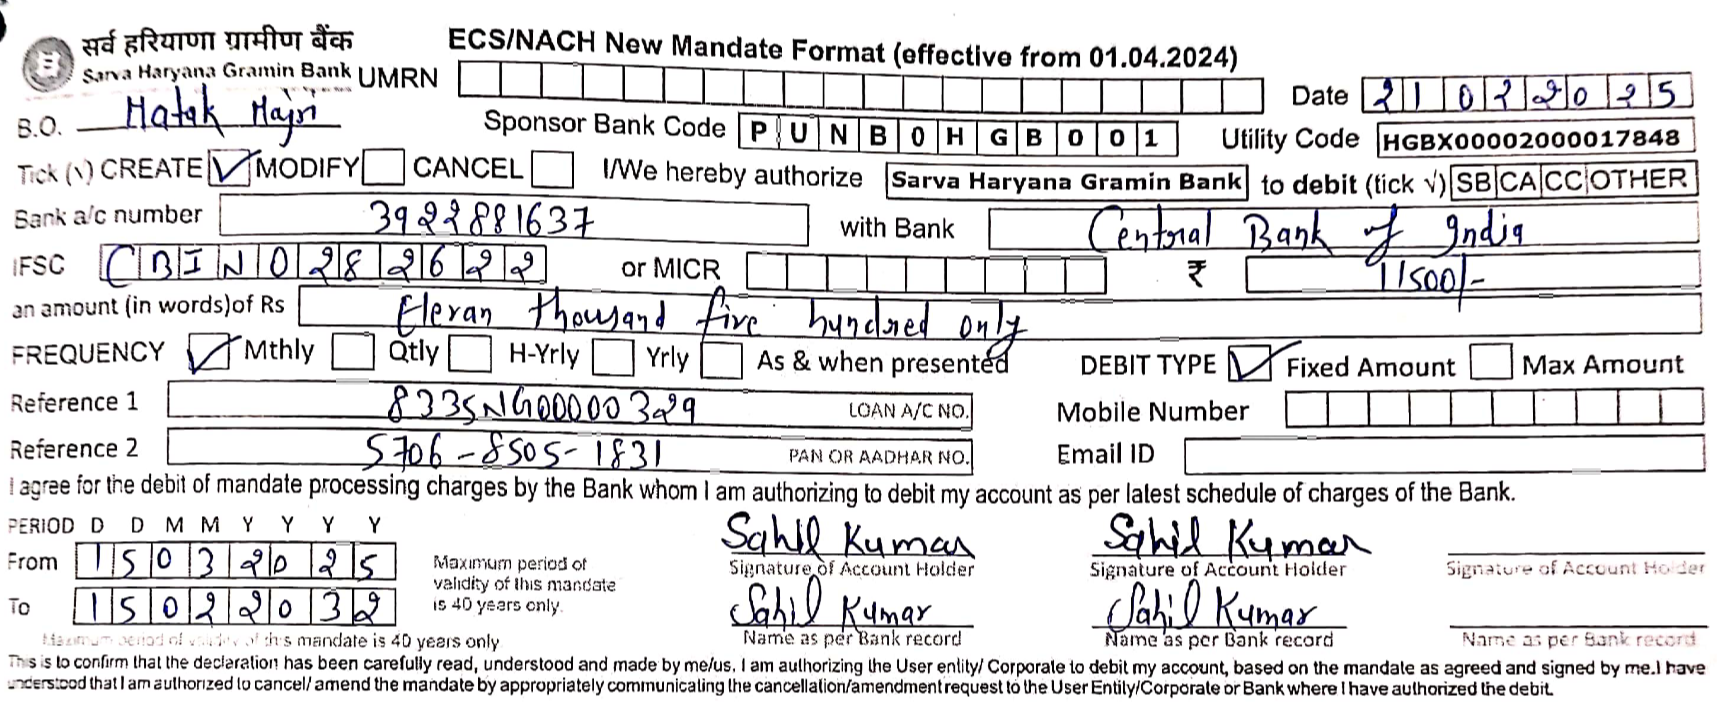 सर्व हरियाणा ग्रामीण बैंक
Sarva Haryana Gramin Bank
ECS/NACH New Mandate Format (effective from 01.04.2024)
UMRN
Date 21022025
B.O. Hatak Majri
Sponsor Bank Code PUNB0HGB001 Utility Code HGBX00002000017848
Tick (√) CREATE ✓ MODIFY CANCEL I/We hereby authorize Sarva Haryana Gramin Bank to debit (tick √) SB CA CC OTHER
Bank a/c number 3922881637 with Bank Central Bank of India
IFSC CBIN0282622 or MICR ₹ 11500/-
an amount (in words)of Rs Eleran thousand five hundred only
FREQUENCY ✓ Mthly Qtly H-Yrly Yrly As & when presented DEBIT TYPE ✓ Fixed Amount Max Amount
Reference 1 8335NG00000329 LOAN A/C NO. Mobile Number
Reference 2 5706-8505-1831 PAN OR AADHAR NO. Email ID
I agree for the debit of mandate processing charges by the Bank whom I am authorizing to debit my account as per latest schedule of charges of the Bank.
PERIOD D D M M Y Y Y Y
From 15032025
To 15022032
Maximum period of validity of this mandate is 40 years only
Maximum period of
validity of this mandate
is 40 years only.
Sahil Kumar Sahil Kumar
Signature of Account Holder Signature of Account Holder Signature of Account Holder
Sahil Kumar Sahil Kumar
Name as per Bank record Name as per Bank record Name as per Bank record
This is to confirm that the declaration has been carefully read, understood and made by me/us. I am authorizing the User entity/ Corporate to debit my account, based on the mandate as agreed and signed by me.I have
understood that I am authorized to cancel/ amend the mandate by appropriately communicating the cancellation/amendment request to the User Entity/Corporate or Bank where I have authorized the debit.